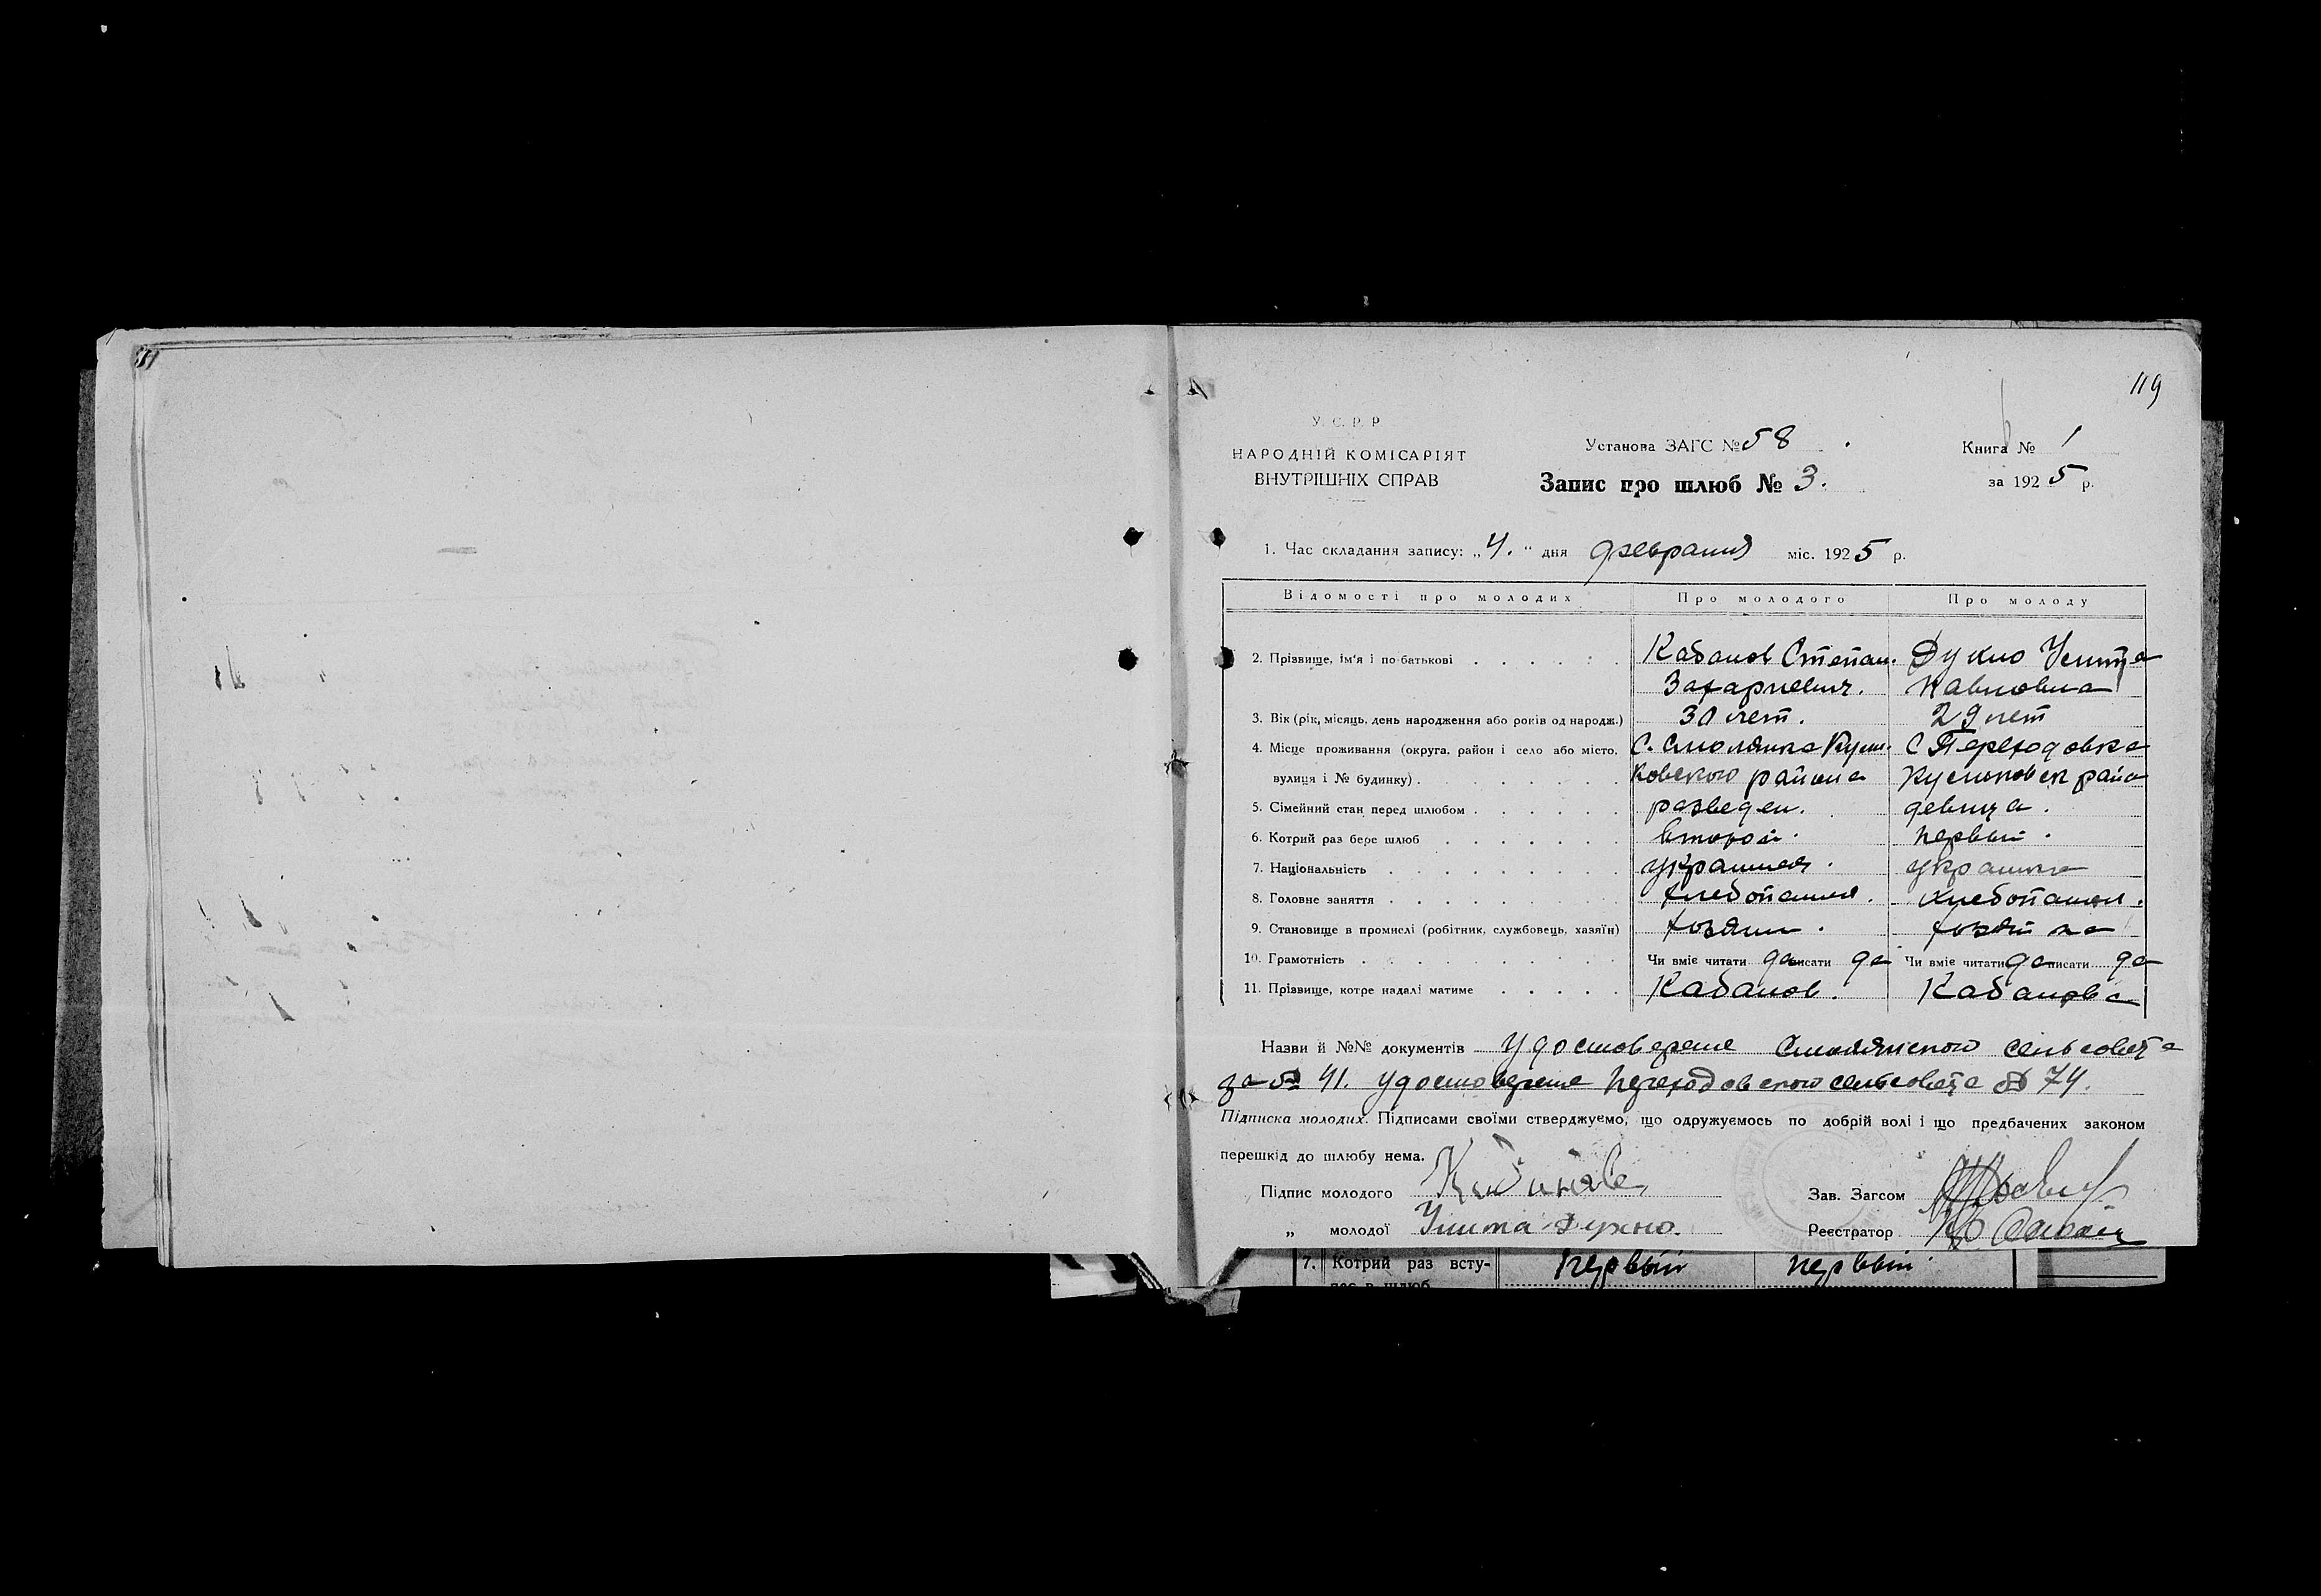 119
У. С. Р. Р.
НАРОДНІЙ КОМІСАРІЯТ
ВНУТРІШНІХ СПРАВ
Установа ЗАГС № 58
Запис про шлюб № 3.
Книга № 1
за 1925 р.
1. Час складання запису: „4.“ дня февраля міс. 1925 р.
Відомості про молодих Про молодого Про молоду
2. Прізвище, ім'я і по-батькові Кабанов Степан. Духно Улита
Захариевич. Павловна
3. Вік (рік, місяць, день народження або років од народж.) 30 лет. 29 лет
4. Місце проживання (округа, район і село або місто, С. Смолянка Кули- С Переходовка
вулиця і № будинку) ковского района Куликовск райо
5. Сімейний стан перед шлюбом разведен. девица.
6. Котрий раз бере шлюб второй. первый.
7. Національність украинец. украинка
8. Головне заняття хлебопашец. хлебопашец.
9. Становище в промислі (робітник, службовець, хазяїн) хозяин. хозяйка
10. Грамотність Чи вміє читати да писати да Чи вміє читати да писати да
11. Прізвище, котре надалі матиме Кабанов. Кабанова
Назви й №№ документів удостоверение Смолянского сельсовета
за № 41. удостоверение Переходовского сельсовета № 74.
Підписка молодих. Підписами своїми стверджуємо, що одружуємось по добрій волі і що предбачених законом
перешкід до шлюбу нема.
Підпис молодого Кабанов
Зав. Загсом
„ молодої Улита Духно.
Реєстратор
7. Котрий раз всту- первый первый
пає в шлюб